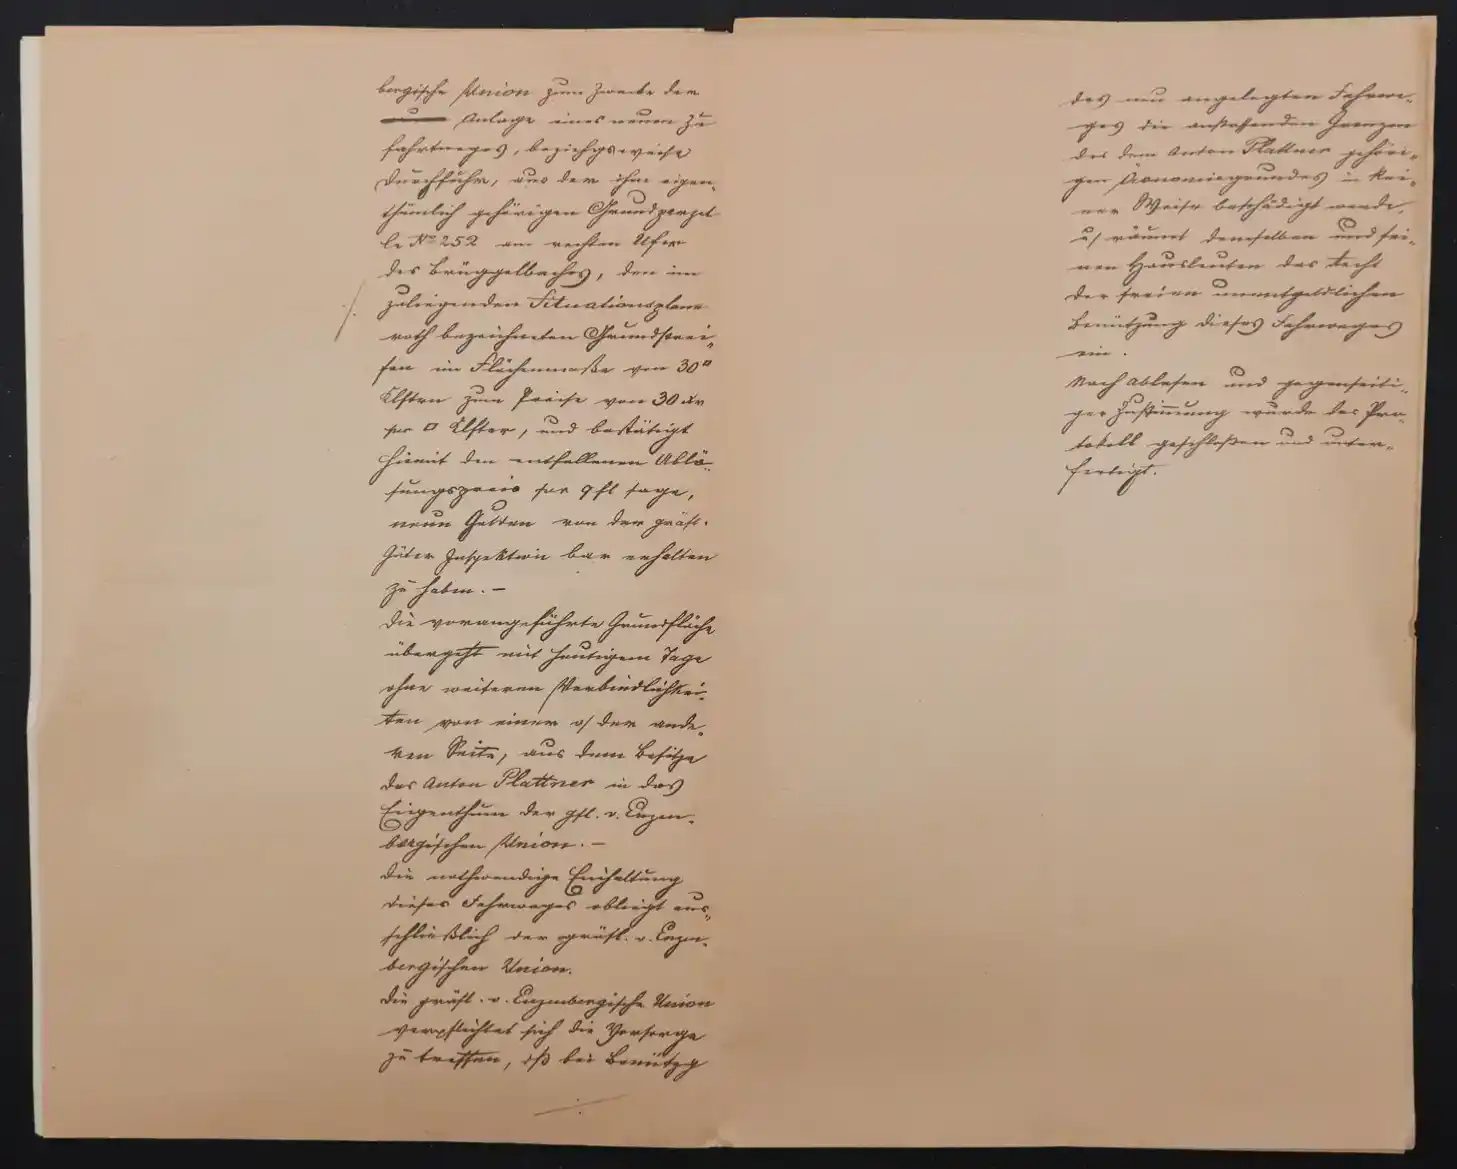 bergische Union zum Zwecke der
Anlage eines neuen Zu
fahrtweges, beziehgsweise
Durchfuhr, aus der ihm eigen„
thümlich gehörigen Grundparzel
le No 252 am rechten Ufer
des Brüggelbaches, den im
zuliegenden Situationsplane
roth bezeichneten Grundstrei„
fen im Flächenmaße von 30 □
Klftrn zum Preise von 30 xr
per □ Klfter, und bestätigt
hiemit den entfallenen Ablö„
sungspreis per 9 fl sage,
neun Gulden von der gräfl.
Güter Inspektion bar erhalten
zu haben. –
Die vorangeführte Grundfläche
übergeht mit heutigem Tage
ohne weiteren Verbindlichkei„
ten von einer o/ der ande„
ren Seite, aus dem Besitze
des Anton Plattner in das
Eigenthum der gfl. v. Enzen„
bergischen Union. –
Die nothwendige Einhaltung
dieses Fahrweges obliegt aus„
schließlich der gräfl. v. Enzen„
bergischen Union.
Die gräfl. v. Enzenbergische Union
verpflichtet sich die Vorsorge
zu treffen, dß bei Benützg
des neu angelegten Fahrwe„
ges die anstossenden Grenzen
des dem Anton Plattner gehöri„
gen Öconomiegrundes in kei„
ner Weise beschädigt werde,
u/ räumt demselben und sei„
nen Hausleuten das Recht
der freien unentgeldlichen
Benützung dieses Fahrweges
ein.
Nach Ablesen und gegenseiti„
ger Zustimmung wurde das Pro„
tokoll geschloßen und unter„
fertigt.